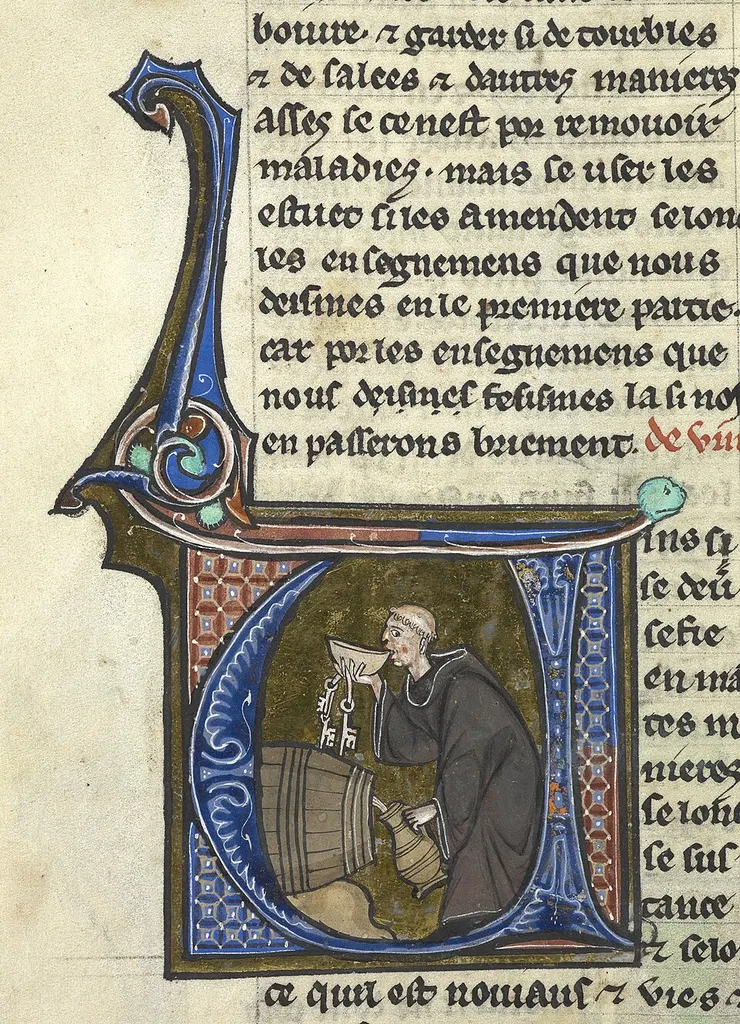 boiure. ⁊ garder si de tourbles
⁊ de salees ⁊ dautres manieres
asses se ce nest por remouoir
maladies. mais se user les
estuet si les amendent selonc
les ensegnemens que nous
desimes en le premiere partie.
car por les ensegnemens que
nous desimes fesismes la si nos
en passerons briement. de vin
ins si
se deu
sefie
en ma
tes m
nieres
selonc
se sus
tance
⁊ selo
ce quil est nouiaus ⁊ vies ⁊